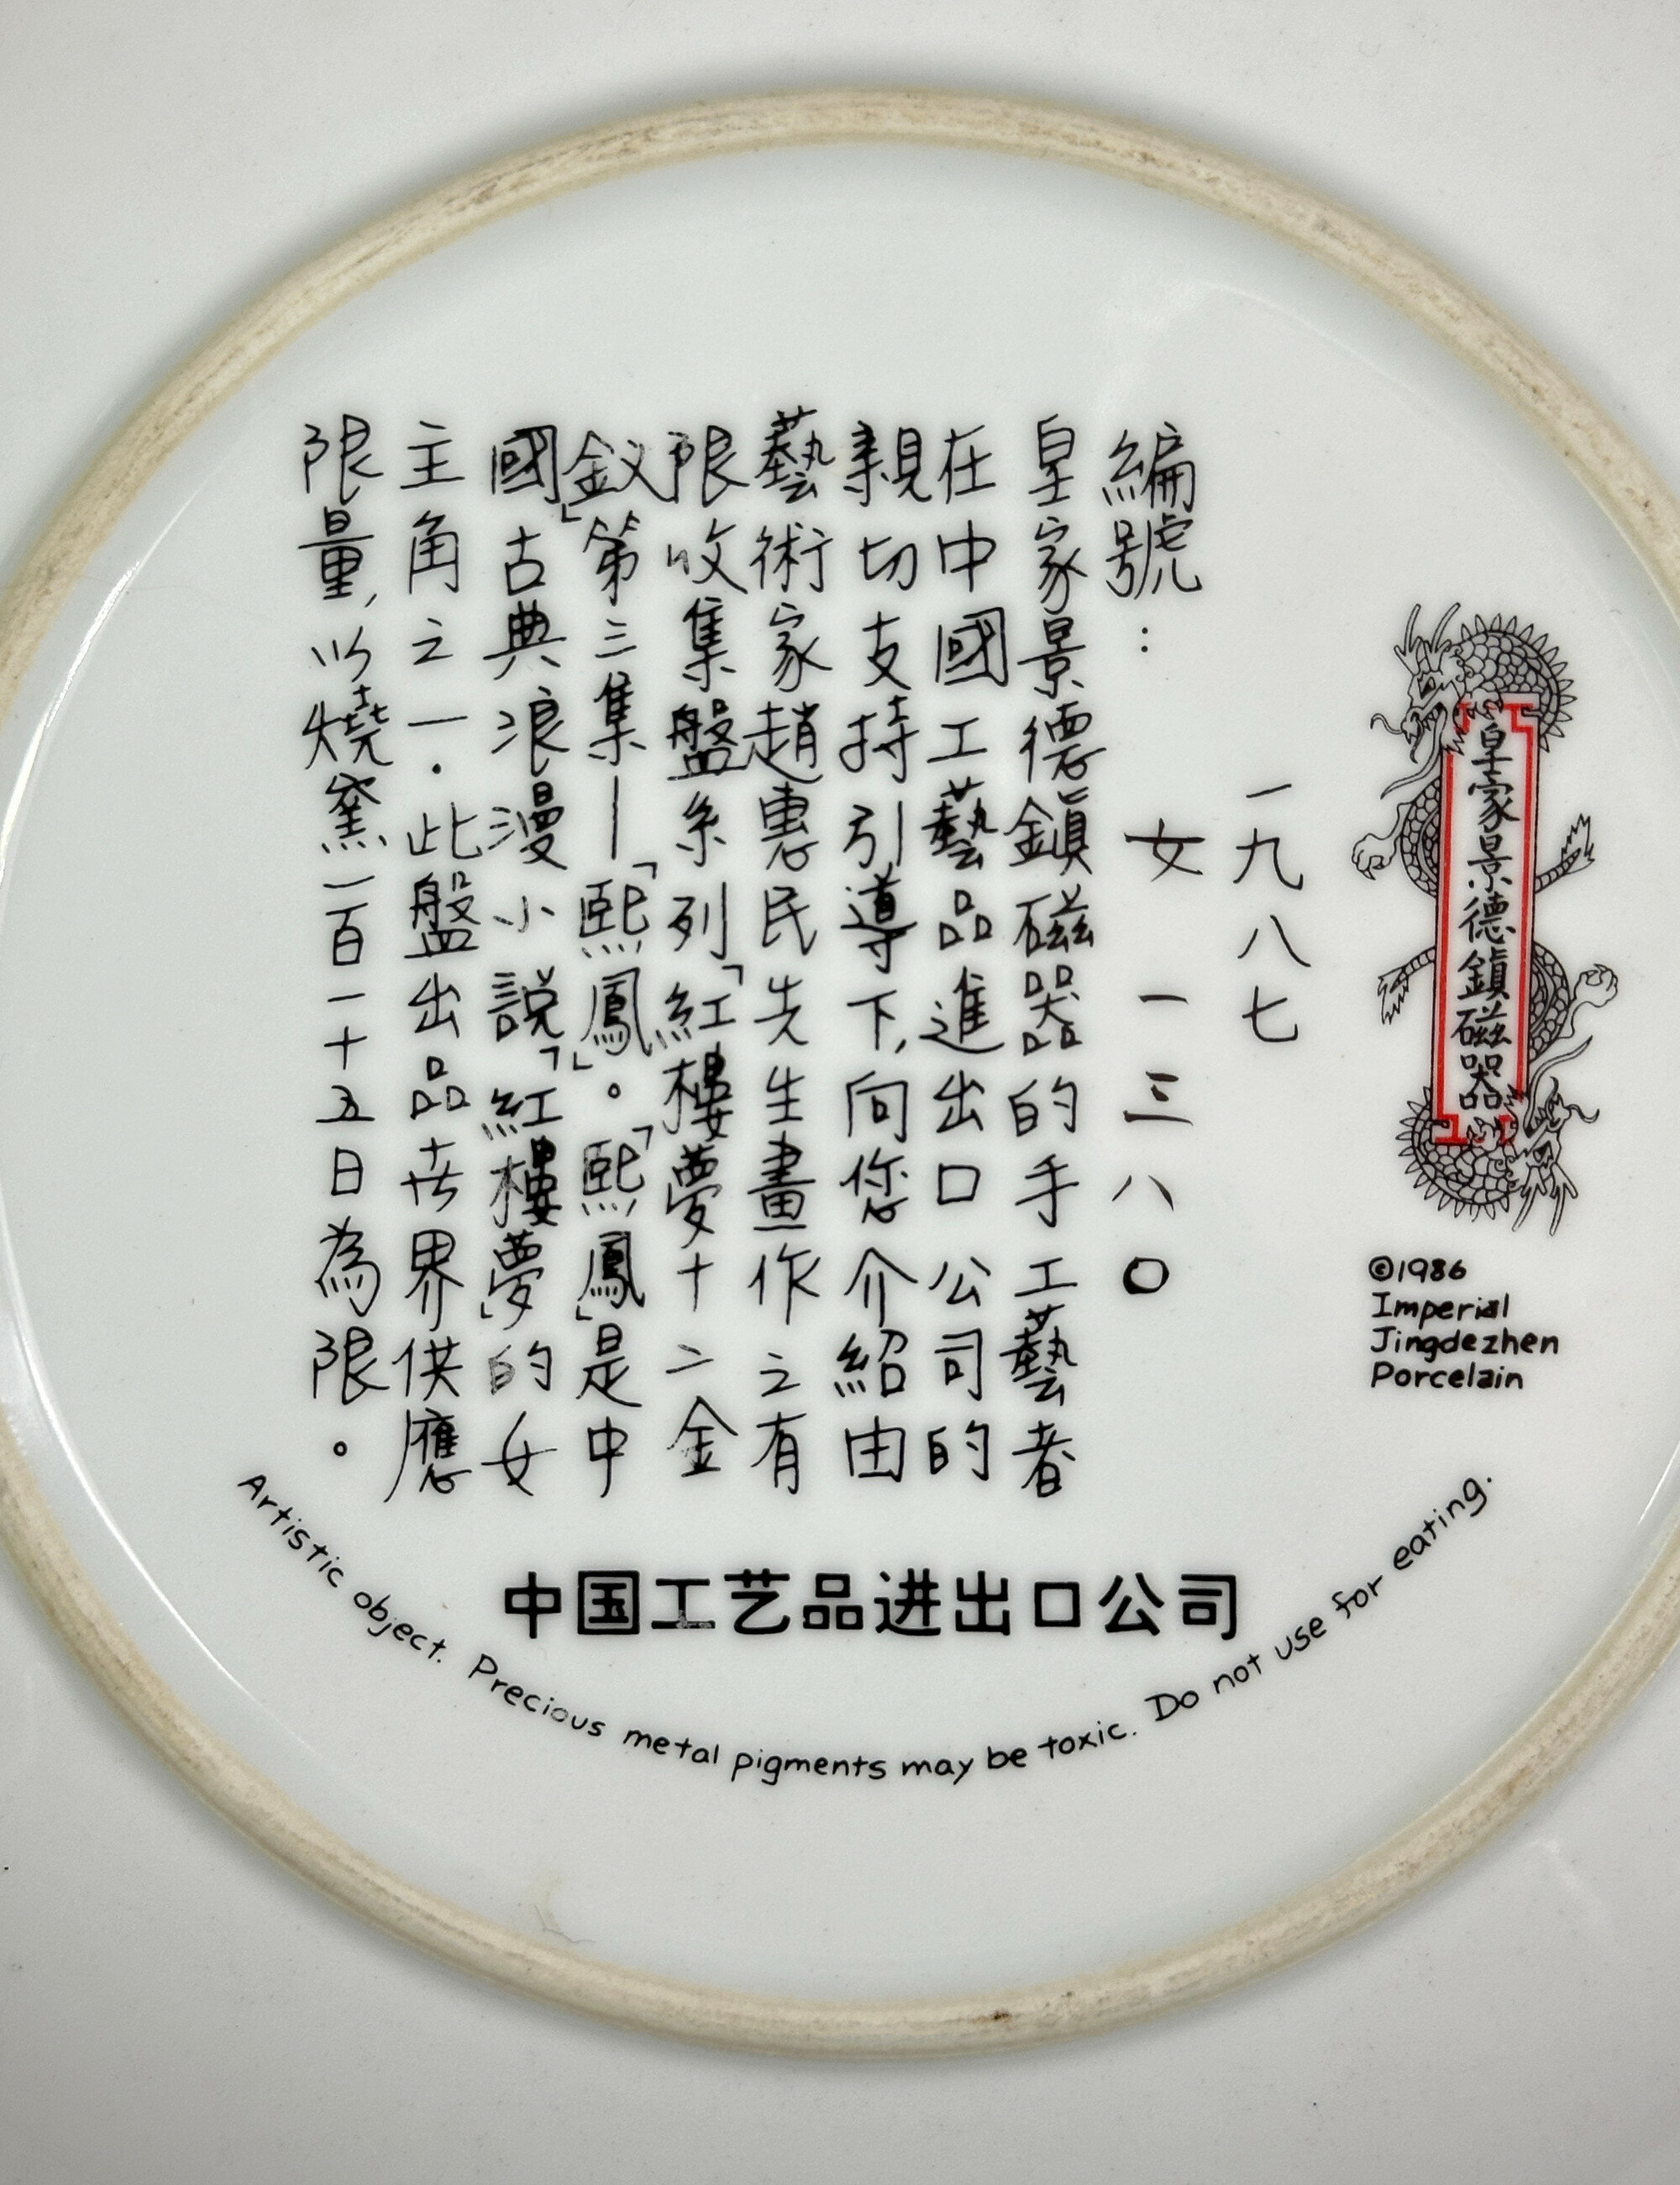 皇家景德鎮磁器
©1986
Imperial
Jingdezhen
Porcelain
一九八七
編號：
女一三八〇
皇家景德鎮磁器的手工藝者
在中國工藝品進出口公司的
親切支持引導下,向您介紹由
藝術家趙惠民先生畫作之有
限收集盤系列「紅樓夢十二金
釵」第三集—「熙鳳」。「熙鳳」是中
國古典浪漫小說「紅樓夢」的女
主角之一.此盤出品在世界供應
限量,以燒窯一百一十五日為限。
中国工艺品进出口公司
Artistic object. Precious metal pigments may be toxic. Do not use for eating.